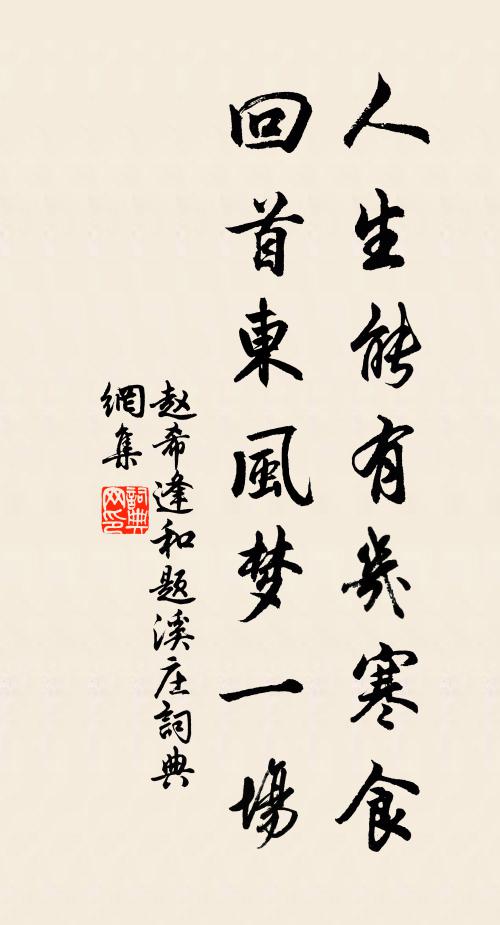 人生能有幾寒食
回首東風梦一場
赵希逢和题溪庄詞典
網集
詞典
网印